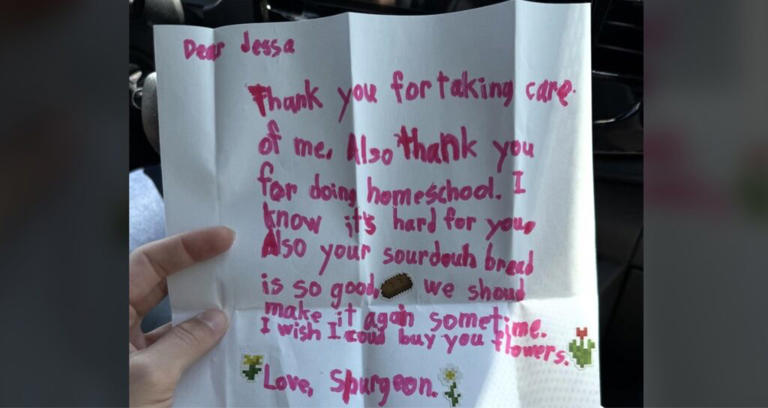 Dear Jessa
Thank you for taking care
of me. Also thank you
for doing homeschool. I
know it's hard for you,
Also your sourdouh bread
is so good, we shoud
make it again sometime.
I wish I coud buy you flowers.
Love, Spurgeon.